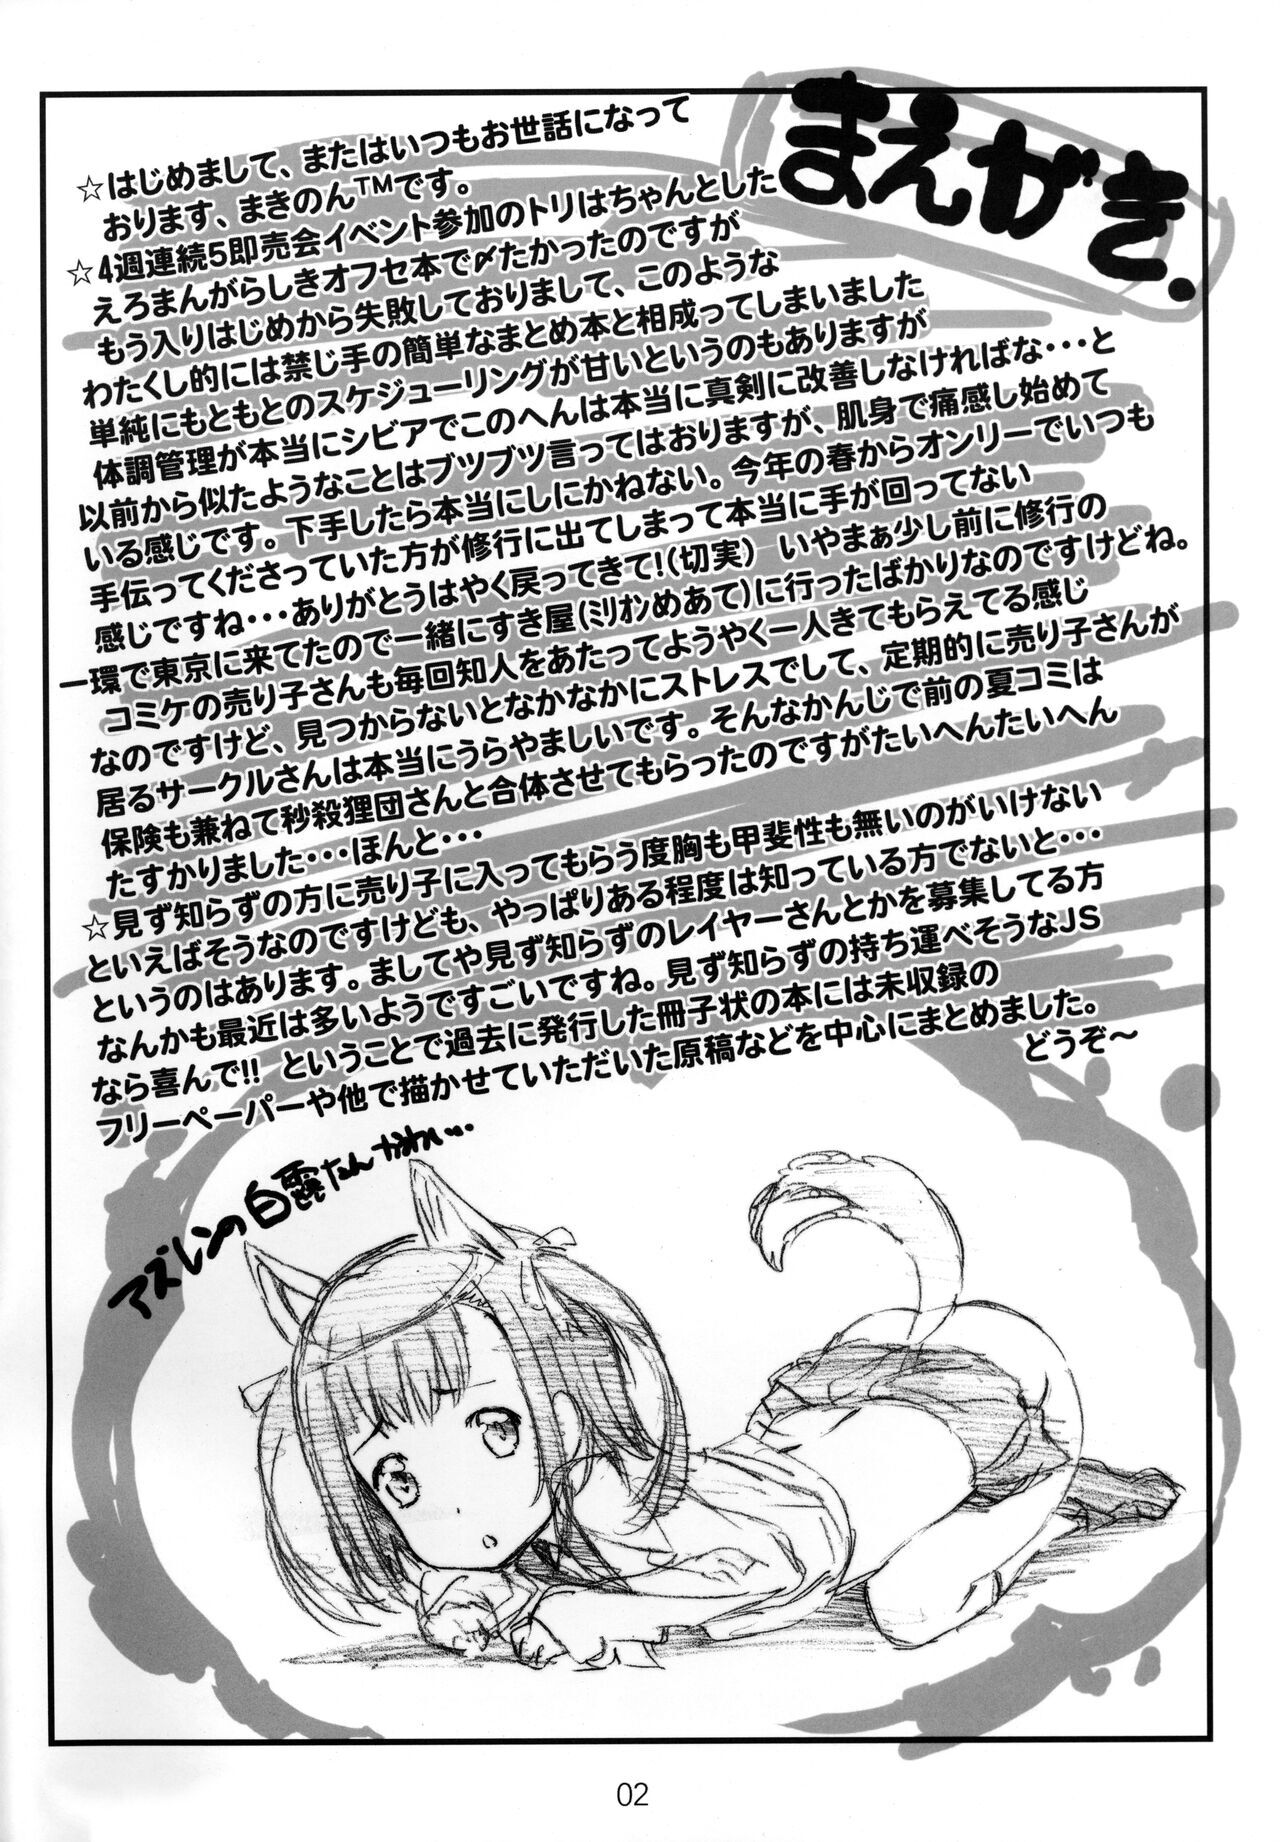 まえがき.
☆はじめまして、またはいつもお世話になって
おります、まきのん™です。
☆4週連続5即売会イベント参加のトリはちゃんとした
えろまんがらしきオフセ本で〆たかったのですが
もう入りはじめから失敗しておりまして、このような
わたくし的には禁じ手の簡単なまとめ本と相成ってしまいました
単純にもともとのスケジューリングが甘いというのもありますが
体調管理が本当にシビアでこのへんは本当に真剣に改善しなければな・・・と
以前から似たようなことはブツブツ言ってはおりますが、肌身で痛感し始めて
いる感じです。下手したら本当にしにかねない。今年の春からオンリーでいつも
手伝ってくださっていた方が修行に出てしまって本当に手が回ってない
感じですね・・・ありがとうはやく戻ってきて!(切実) いやまぁ少し前に修行の
一環で東京に来てたので一緒にすき屋(ミリオンめあて)に行ったばかりなのですけどね。
コミケの売り子さんも毎回知人をあたってようやく一人きてもらえてる感じ
なのですけど、見つからないとなかなかにストレスでして、定期的に売り子さんが
居るサークルさんは本当にうらやましいです。そんなかんじで前の夏コミは
保険も兼ねて秒殺狸団さんと合体させてもらったのですがたいへんたいへん
たすかりました・・・ほんと・・・
☆見ず知らずの方に売り子に入ってもらう度胸も甲斐性も無いのがいけない
といえばそうなのですけども、やっぱりある程度は知っている方でないと・・・
というのはあります。ましてや見ず知らずのレイヤーさんとかを募集してる方
なんかも最近は多いようですごいですね。見ず知らずの持ち運べそうなJS
なら喜んで!! ということで過去に発行した冊子状の本には未収録の
フリーペーパーや他で描かせていただいた原稿などを中心にまとめました。
どうぞ～
アズレンの白露たんかわい…
02